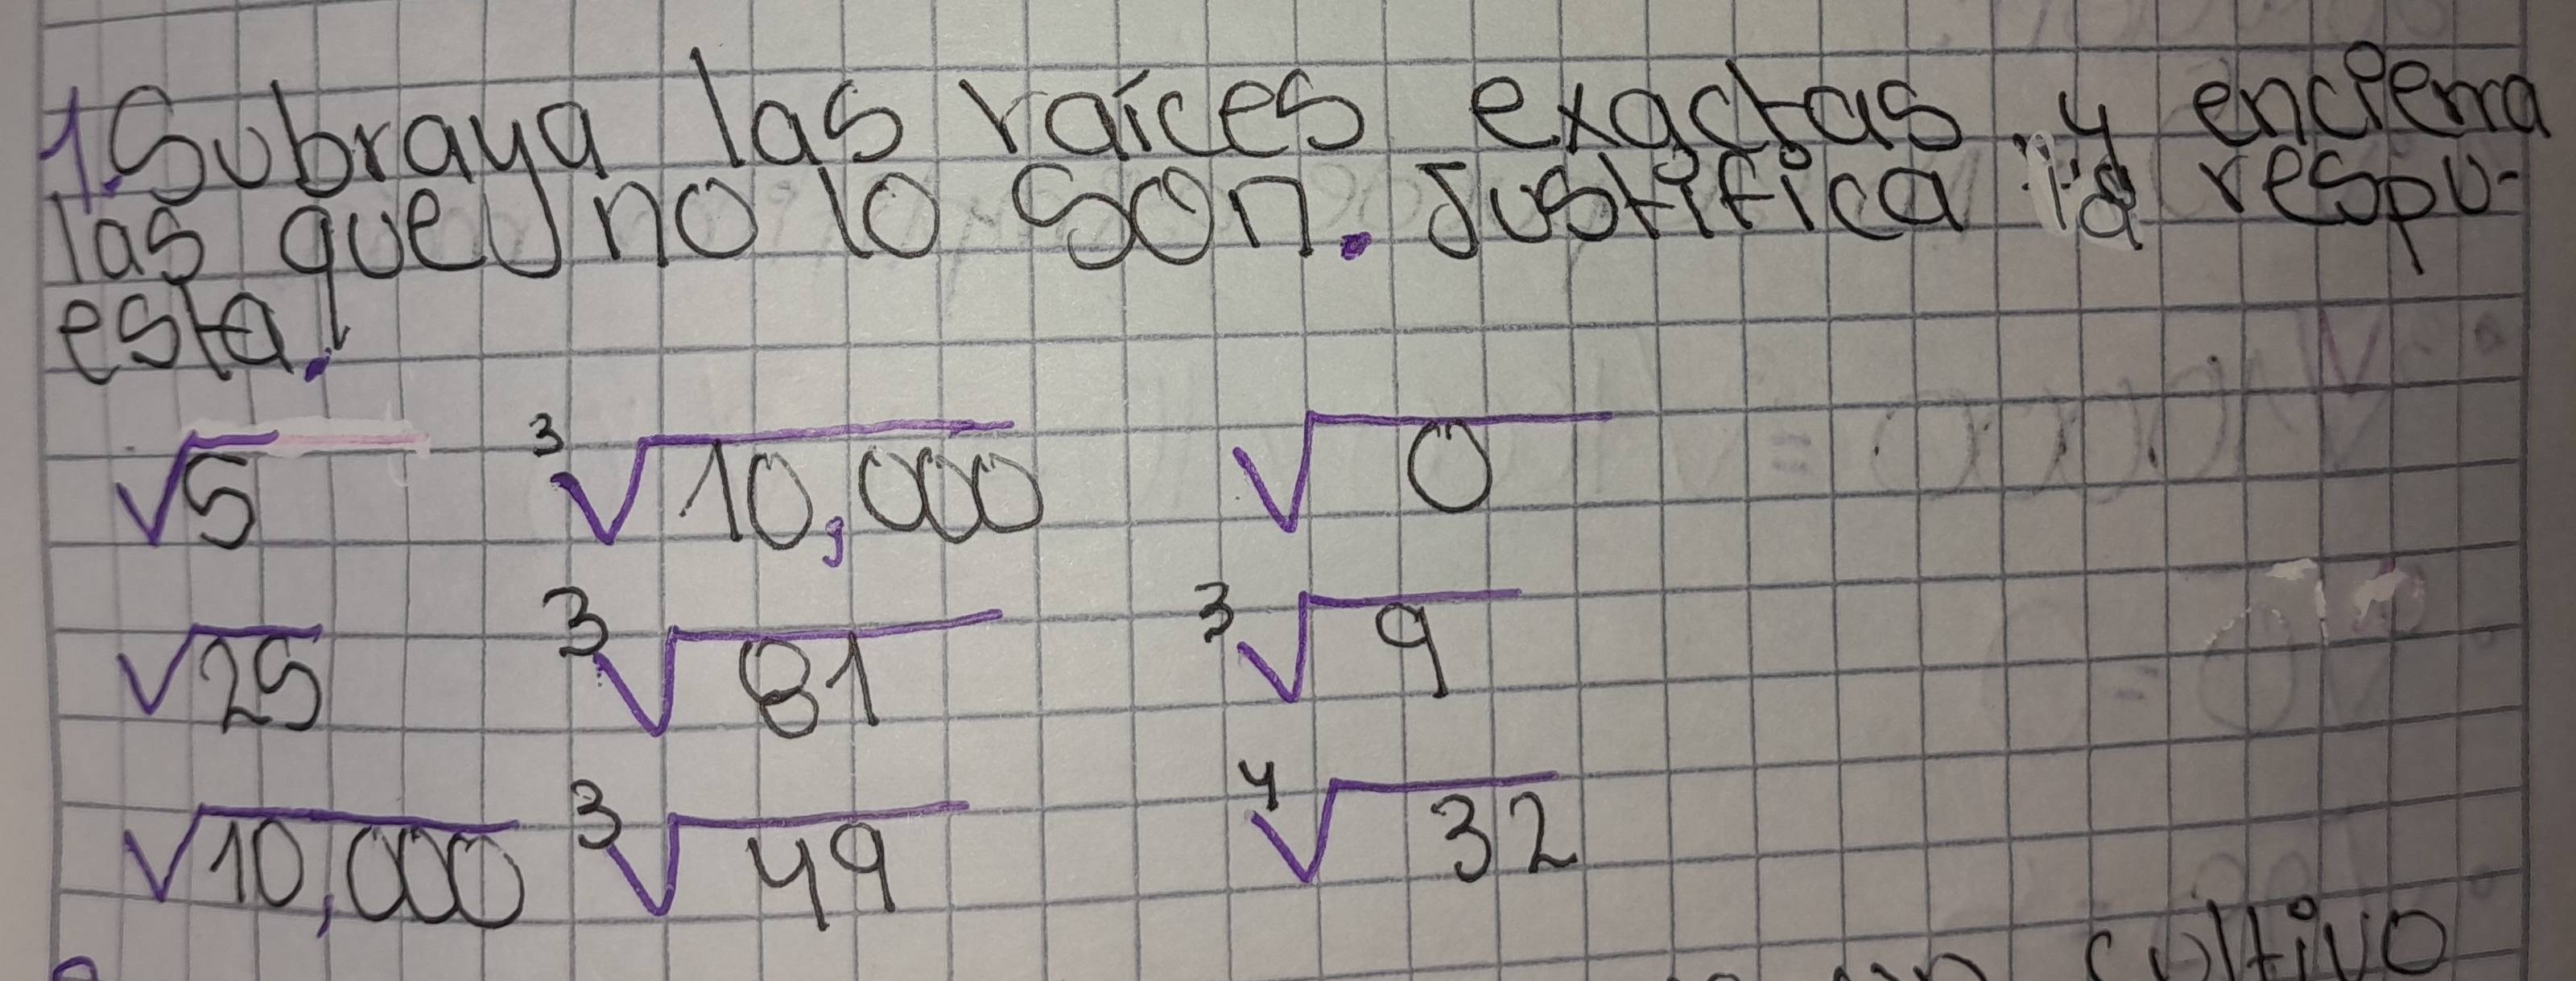 1. Subraya las raíces exactas y encierra
las que no lo son. Justifica la respu-
esta.
√5 ³√10,000 √0
√25 ³√81 ³√9
√10,000 ³√49 ⁴√32
cultivo